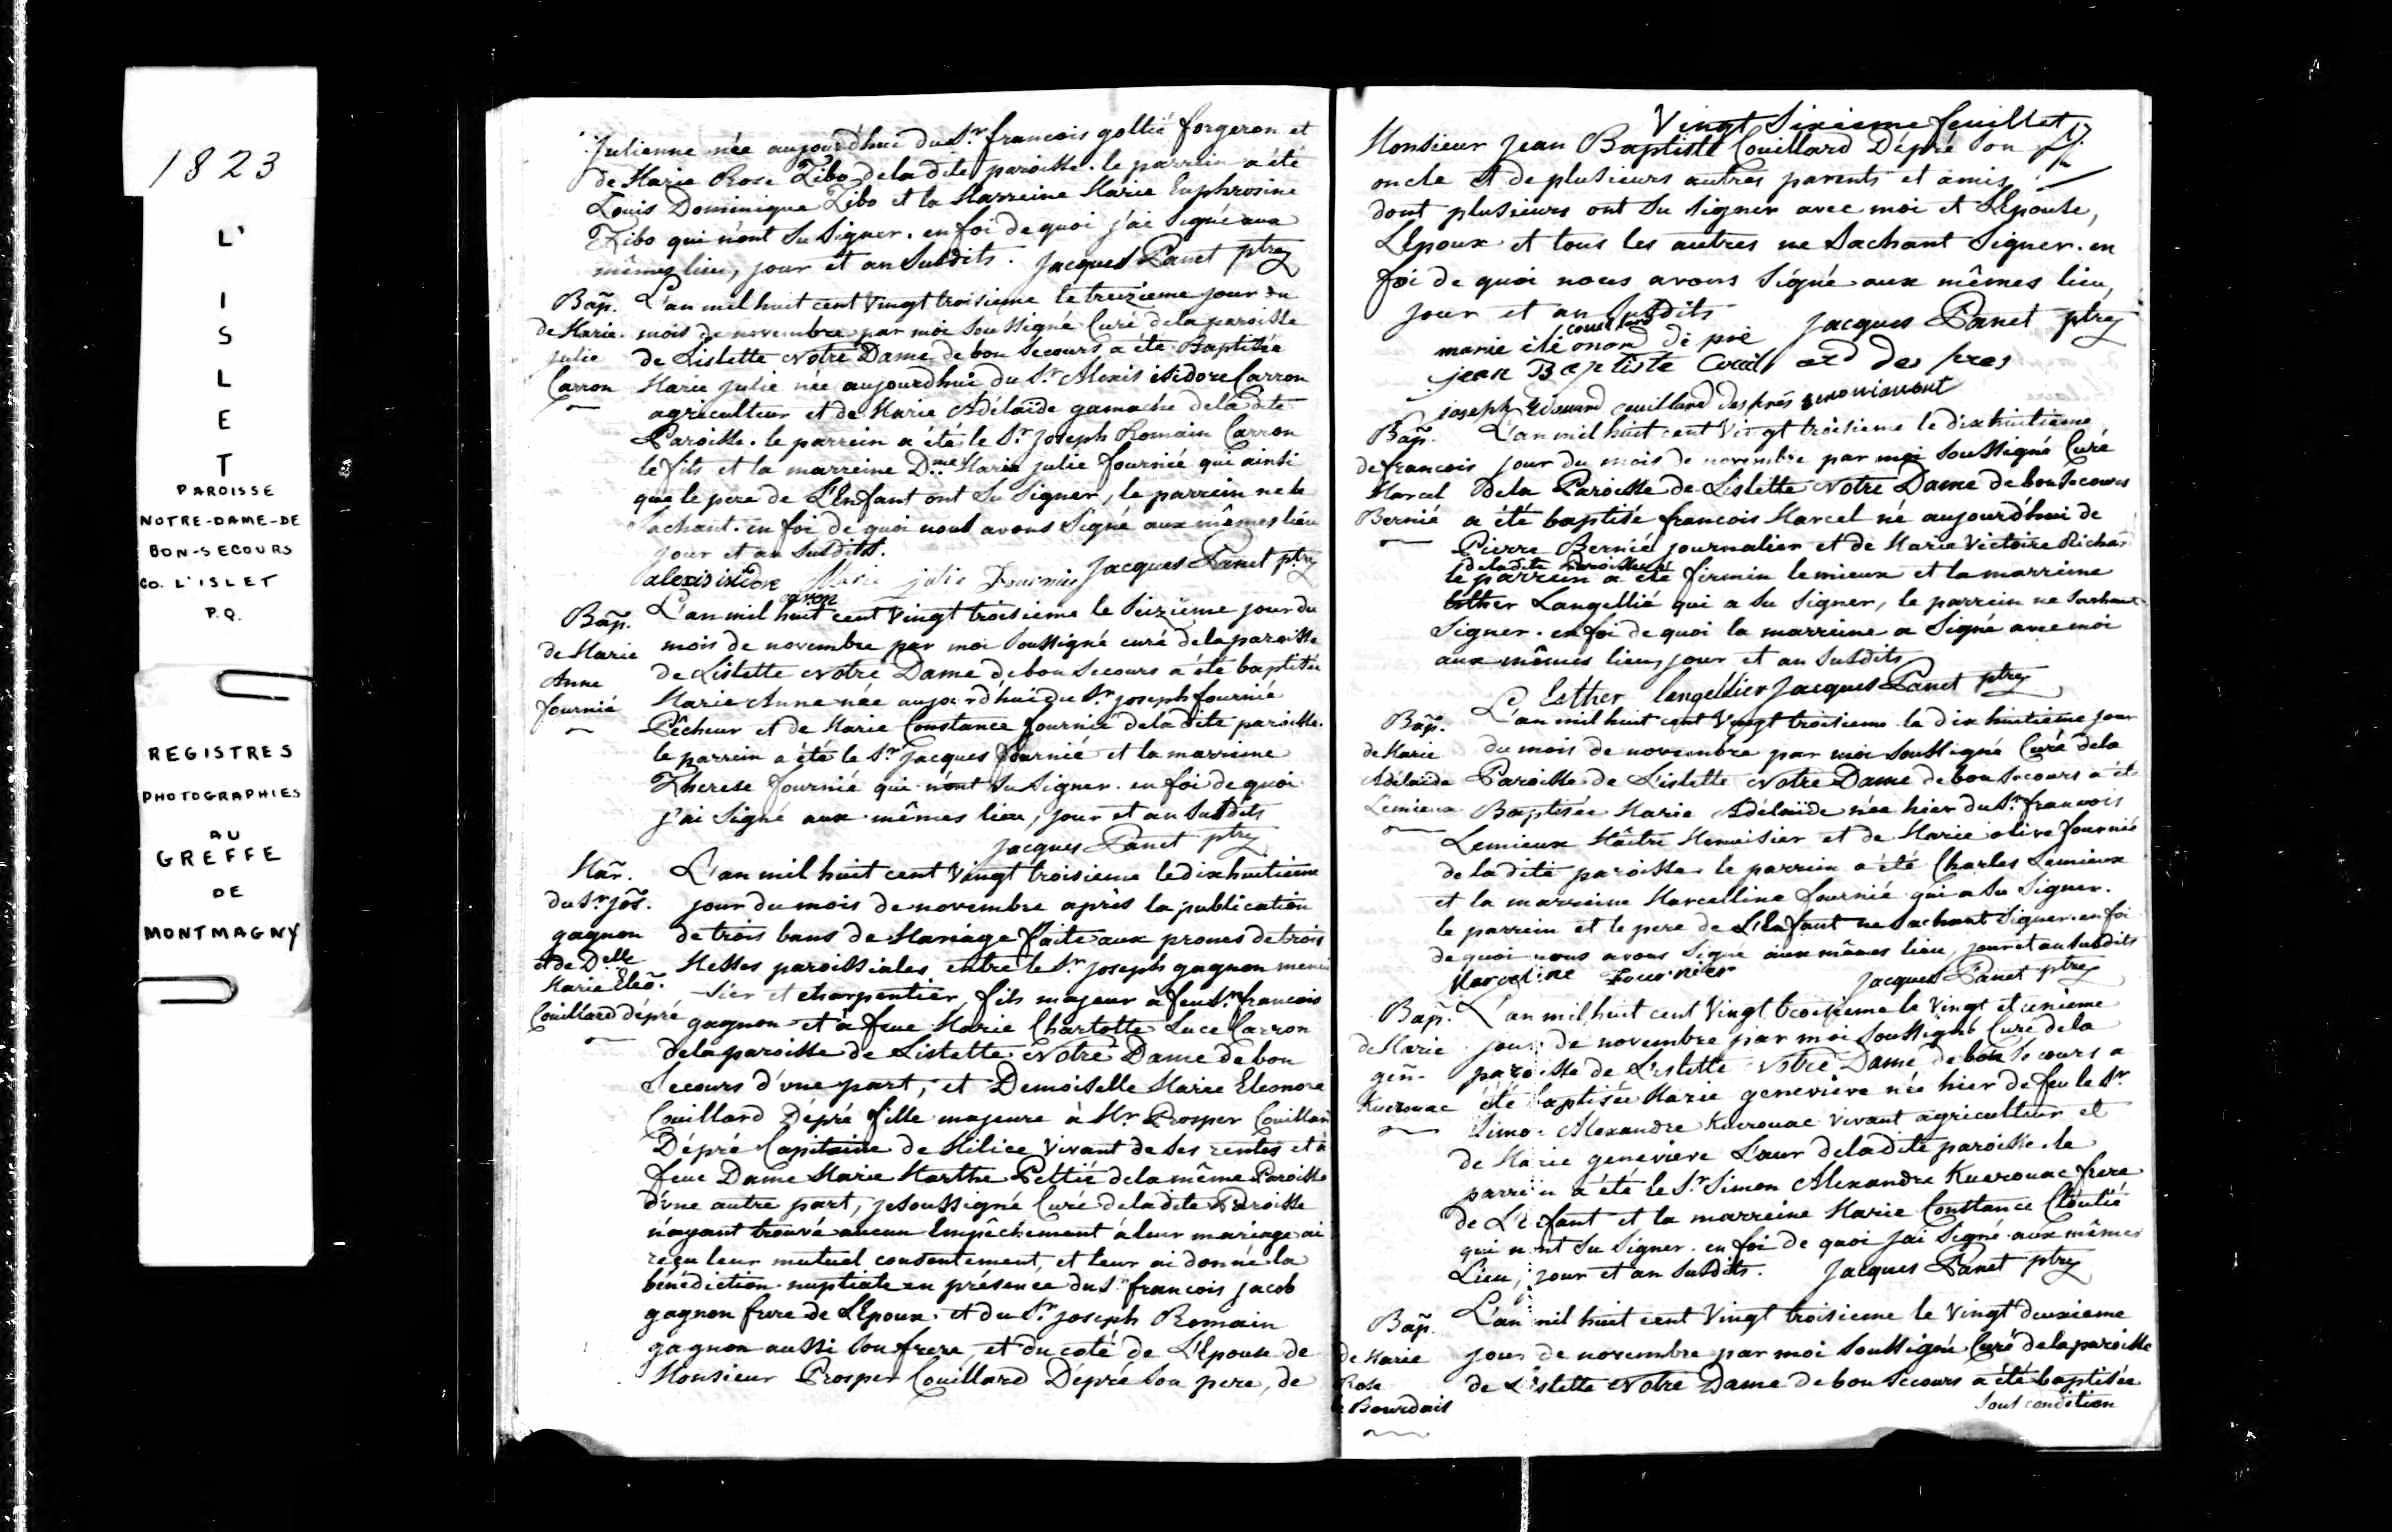 1823
L'
I
S
L
E
T
PAROISSE
NOTRE-DAME-DE
BON-SECOURS
CO. L'ISLET
P.Q.
REGISTRES
PHOTOGRAPHIES
AU
GREFFE
DE
MONTMAGNY
Julienne née aujourd'hui du Sr. francois goltié forgeron et
de Marie Rose Zibo de la dite paroisse. le parrein a été
Louis Dominique Zibo et la Marreine Marie Euphrosine
Zibo qui n'ont Su Signer. en foi de quoi j'ai Signé aux
mêmes lieu, jour et an Susdits. Jacques Panet ptre
Bap̃. L'an mil huit cent Vingt troisieme le treizieme jour du
de Marie mois de novembre par moi Soussigné Curé de la paroisse
julie de Lislette Notre Dame de bon Secours a été Baptisée
Carron Marie julie née aujourdhui du Sr. Alexis isidore Carron
agriculteur et de Marie Adélaïde gamache de la dite
Paroisse. le parrein a été le Sr. Joseph Romain Carron
le fils et la marreine Dme. Marie julie fournié qui ainsi
que le pere de L'Enfant ont Su Signer, le parrein ne le
Sachant. en foi de quoi nous avons Signé aux mêmes lieu
jour et an Susdits.
alexis isidore caron Marie julie Fournier Jacques Panet ptre
Bap̃. L'an mil huit cent Vingt troisieme le Seizieme jour du
de Marie mois de novembre par moi Soussigné curé de la paroisse
Anne de Lislette Notre Dame de bon Secours a été baptisée
fournié Marie Anne née aujourdhui du Sr. joseph fournié
Pêcheur et de Marie Constance fournié de la dite paroisse.
le parrein a été le Sr. jacques fournié et la marreine
Therese fournié qui n'ont Su Signer. en foi de quoi
j'ai Signé aux mêmes lieu, jour et an Susdits
Jacques Panet ptre
Mar̃. L'an mil huit cent Vingt troisieme le dix huitieme
du Sr. jos̃. jour du mois de novembre après la publication
gagnon de trois bans de Mariage faite aux prones de trois
et de Delle Messes paroissiales entre le Sr. joseph gagnon menui
Marie Eleõ. -sier et charpentier, fils majeur à feu Sr. francois
Couillard dépré gagnon et à feue Marie Charlotte Luce Carron
de la paroisse de Lislette Notre Dame de bon
Secours d'une part, et Demoiselle Marie Eleonore
Couillard Dépré fille majeure à Mr. Prosper Couillard
Dépré Capitaine de Milice Vivant de Ses rentes et à
feue Dame Marie Marthe Pettié de la même Paroisse
d'une autre part, je Soussigné Curé de la dite Paroisse
n'ayant trouvé aucun Empêchement à leur mariage ai
reçu leur mutuel consentement, et leur ai donné la
bénédiction nuptiale en présence du Sr. francois jacob
gagnon frere de L'Epoux et du Sr. joseph Romain
gagnon aussi Son frere et du coté de L'Epouse de
Monsieur Prosper Couillard Dépré Son pere, de
Vingt Sixieme feuillet
Monsieur Jean Baptiste Couillard Dépré Son
oncle et de plusieurs autres parents et amis
dont plusieurs ont Su Signer avec moi et L'Epouse,
L'Epoux et tous les autres ne Sachant Signer. en
foi de quoi nous avons Signé aux mêmes lieu,
jour et an Susdits Jacques Panet ptre
marie éléonord couillard dé pré
jean Baptiste Couillard des pres
joseph Edouard couillard des prés
Bap̃. L'an mil huit cent Vingt troisieme le dix huitieme
de francois jour du mois de novembre par moi Soussigné Curé
Marcel de la Paroisse de Lislette Notre Dame de bon Secours
Bernié a été baptisé francois Marcel né aujourd'hui de
Pierre Bernié journalier et de Marie Victoire Richard
de la dite Paroisse
le parrein a été firmin lemieux et la marreine
Esther Langellié qui a Su Signer, le parrein ne Sachant
Signer. en foi de quoi la marreine a Signé avec moi
aux mêmes lieu, jour et an Susdits
Esther langellier Jacques Panet ptre
Bap̃. L'an mil huit cent Vingt troisieme le dix huitieme jour
de Marie du mois de novembre par moi Soussigné Curé de la
Adélaïde Paroisse de L'islette Notre Dame de bon Secours a été
Lemieux Baptisée Marie Adélaïde née hier du Sr. francois
Lemieux Maître Menuisier et de Marie olive fournié
de la dite paroisse le parrein a été Charles Lemieux
et la marreine Marcelline fournié qui a Su Signer.
le parrein et le pere de L'Enfant ne Sachant Signer. en foi
de quoi nous avons Signé aux mêmes lieu, jour et an Susdits
Marceline Fournier Jacques Panet ptre
Bap̃. L'an mil huit cent Vingt troisieme le Vingt et unieme
de Marie jour de novembre par moi Soussigné Curé de la
geñ. paroisse de L'islette Notre Dame de bon Secours a
Kuerouac été baptisée Marie geneviève née hier de feu le Sr.
Simon Alexandre Kuerouac Vivant agriculteur et
de Marie genevieve Laur de la dite paroisse. le
parrein a été le Sr. Simon Alexandre Kuerouac frere
de L'enfant et la marreine Marie Constance Cloutié
qui n'ont Su Signer. en foi de quoi j'ai Signé aux mêmes
Lieu, jour et an Susdits. Jacques Panet ptre
Bap̃. L'an mil huit cent Vingt troisieme le Vingt deuxieme
de Marie jour de novembre par moi Soussigné Curé de la paroisse
Rose de Lislette Notre Dame de bon Secours a été baptisée
le Bourdais Sous condition